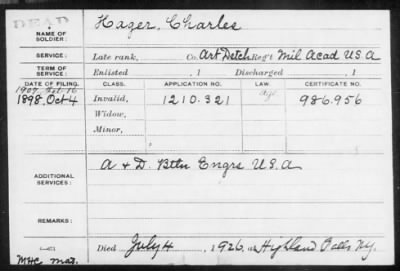 DEAD
NAME OF SOLDIER: Hager, Charles
SERVICE: Late rank, Co. Art Detch Reg't Mil Acad U S A
TERM OF SERVICE: Enlisted , 1 Discharged , 1
DATE OF FILING. CLASS. APPLICATION NO. LAW. CERTIFICATE NO.
1907 Feb 16
1898. Oct 4 Invalid, 1210.321 986.956
Widow,
Minor,
ADDITIONAL SERVICES: A & D. Bttn Engrs U.S.A
REMARKS:
Died July 4 , 1926, at Highland Falls Ny.